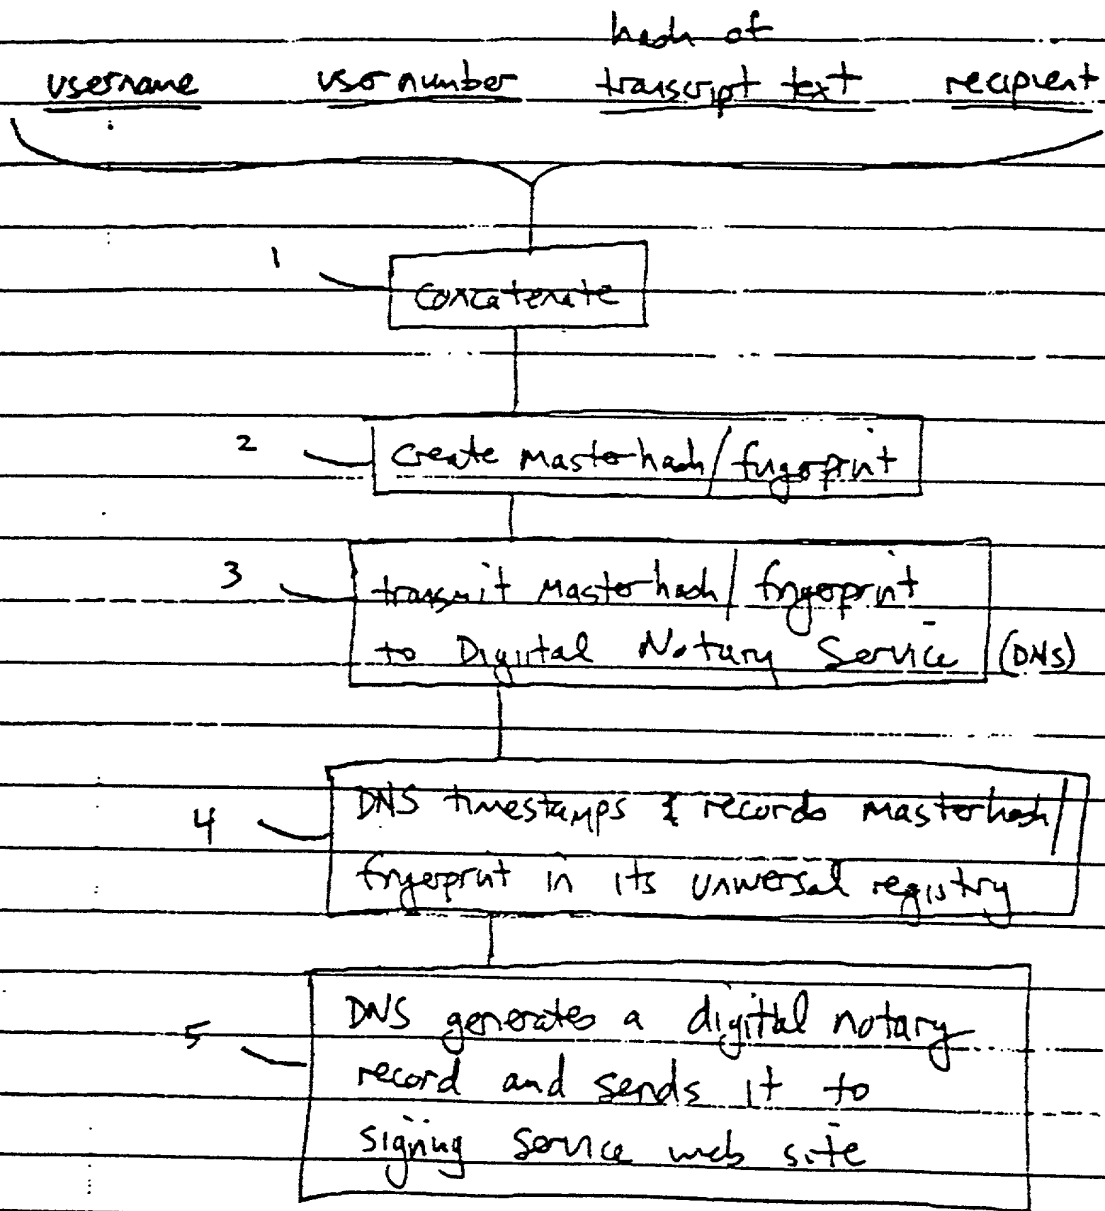 hash of
username user number transcript text recipient
1
concatenate
2
create Masterhash/fingerprint
3
transmit Masterhash/fingerprint
to Digital Notary Service (DNS)
4
DNS timestamps & records Masterhash/
fingerprint in its universal registry
5
DNS generates a digital notary
record and sends it to
signing service web site